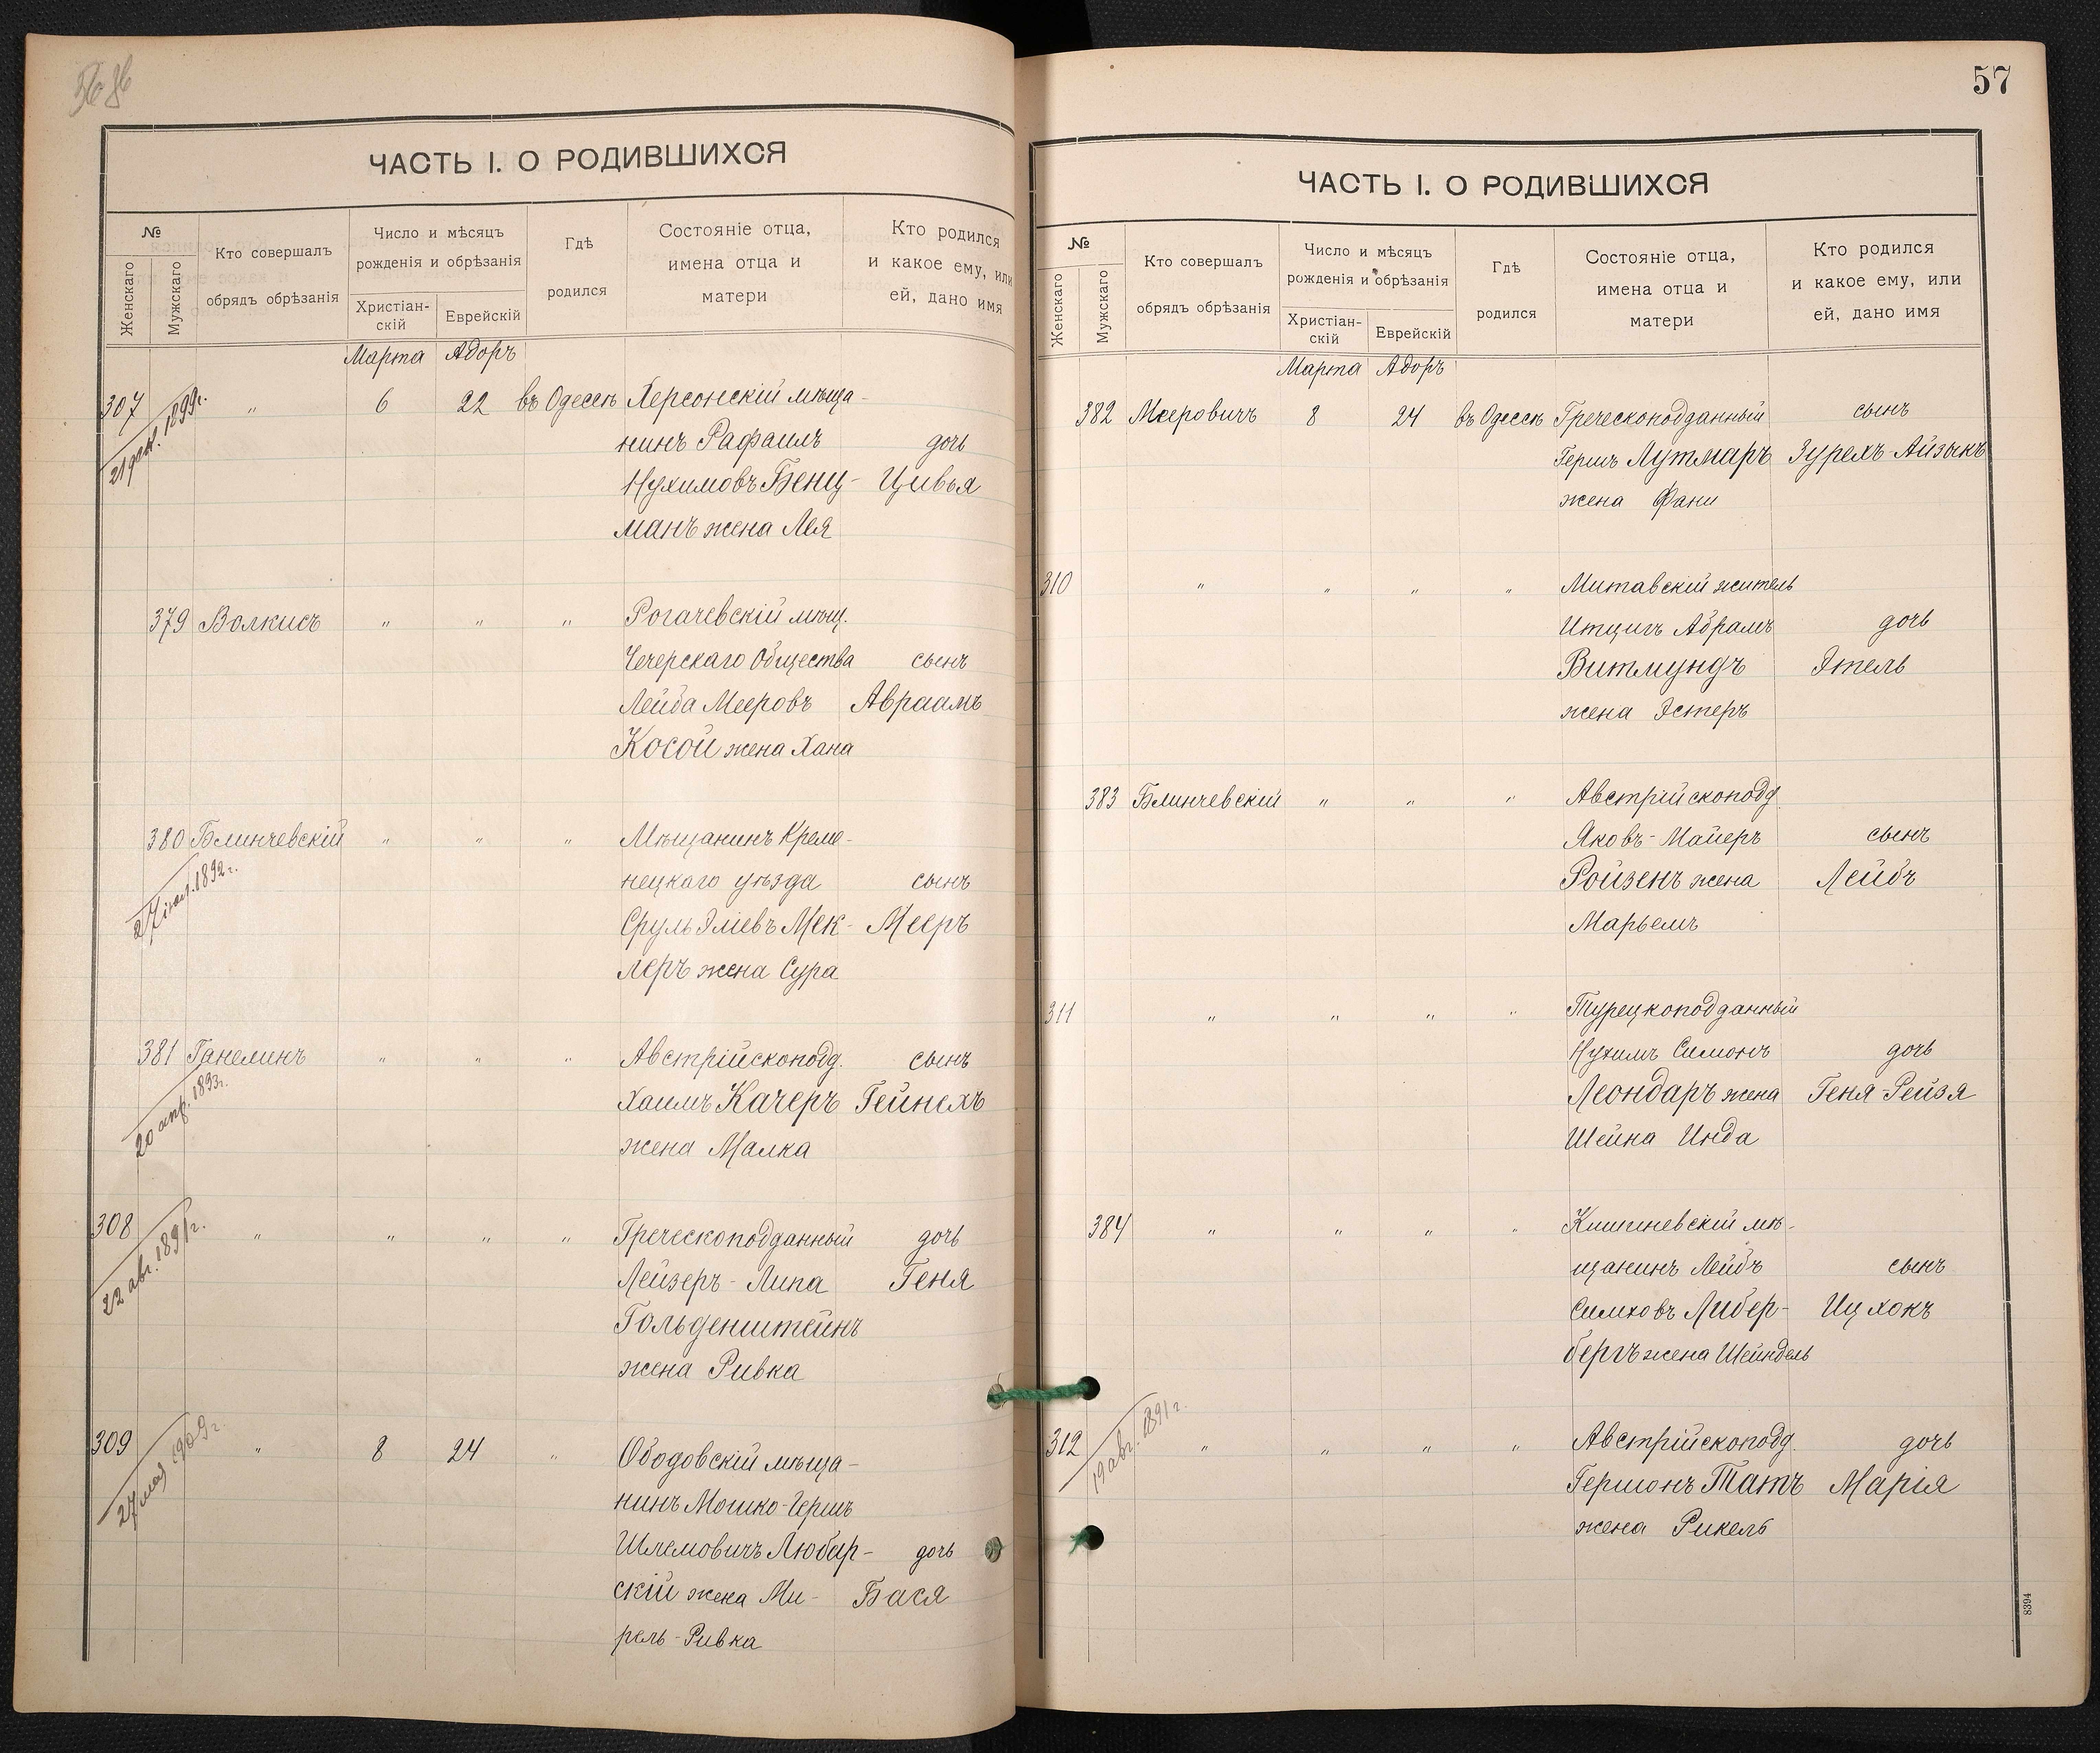 ЧАСТЬ I. О РОДИВШИХСЯ
№
Женскаго
Мужскаго
Кто совершалъ
обрядъ обрѣзанія
Число и мѣсяцъ
рожденія и обрѣзанія
Христіан-
скій
Еврейскій
Гдѣ
родился
Состояніе отца,
имена отца и
матери
Кто родился
и какое ему, или
ей, дано имя
Марта Адоръ
307 " 6 22 въ Одессѣ Херсонскій мѣща-
21 дек. 1899г.
нинъ Рафаилъ дочь
Нухимовъ Бенц- Цивья
манъ жена Лея
379 Волкисъ " " " Рогачевскій мѣщ.
Чечерскаго Общества сынъ
Лейба Мееровъ Авраамъ
Косой жена Хана
380 Блинчевскій " " " Мѣщанинъ Креме-
27 іюл. 1892г.
нецкаго уѣзда сынъ
Сруль Эліевъ Мек- Мееръ
леръ жена Сура
381 Ганелинъ " " " Австрійскоподд. сынъ
20 апр. 1893г.
Хаимъ Качеръ Гейнехъ
жена Малка
308 " " " " Греческоподданный дочь
22 авг. 1891г.
Лейзеръ-Липа Геня
Гольденштейнъ
жена Ривка
309 " 8 24 " Ободовскій мѣща-
27 мая 1909г.
нинъ Мошко-Гершъ
Шлемовичъ Любар- дочь
скій жена Ми- Бася
рель-Ривка
57
ЧАСТЬ I. О РОДИВШИХСЯ
№
Женскаго
Мужскаго
Кто совершалъ
обрядъ обрѣзанія
Число и мѣсяцъ
рожденія и обрѣзанія
Христіан-
скій
Еврейскій
Гдѣ
родился
Состояніе отца,
имена отца и
матери
Кто родился
и какое ему, или
ей, дано имя
Марта Адоръ
382 Мееровичъ 8 24 въ Одессѣ Греческоподданный сынъ
Гершъ Лутмаръ Зурехъ-Айзыкъ
жена Фани
310 " " " " Митавскій житель
Итцигъ Абрамъ дочь
Витмундъ Этель
жена Эстеръ
383 Блинчевскій " " " Австрійскоподд.
Яковъ-Майеръ сынъ
Ройзенъ жена Лейбъ
Марьемъ
311 " " " " Турецкоподданный
Нухимъ Симонъ дочь
Леондаръ жена Геня-Рейзя
Шейна Инда
384 " " " " Кишиневскій мѣ-
щанинъ Лейбъ сынъ
Симховъ Либер- Ицхокъ
бергъ жена Шейндель
312 " " " " Австрійскоподд. дочь
19 авг. 1891г.
Гершонъ Татъ Марія
жена Рикель
8394